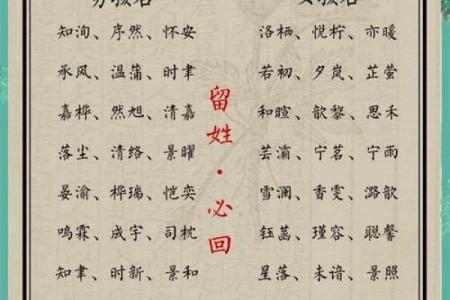 男孩名
知洵、序然、怀安
承风、温蒲、时聿
嘉桦、然旭、清嘉
落尘、清络、景曜
晏渝、桦瑞、恺奕
鸣霖、成宇、司枕
知聿、时新、景和
留姓·必回
女孩名
洛栖、悦柠、亦暖
若初、夕岚、芷萤
和暄、歆黎、思禾
芸灀、宁茗、宁雨
雪澜、香雯、潞歆
钰菡、瑾容、聪馨
星落、未谙、景照